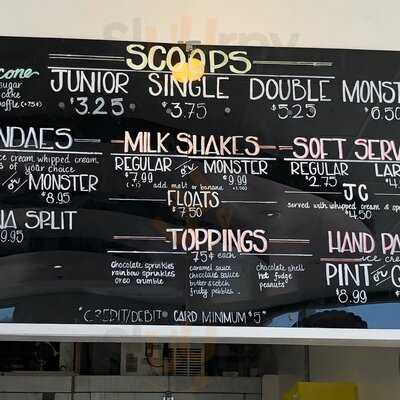 SCOOPS
cone
sugar
cake
waffle (+75¢)
JUNIOR SINGLE DOUBLE MONST
$3.25 $3.75 $5.25 $6.50
NDAES
ice cream whipped cream
of your choice
or MONSTER
$8.95
NA SPLIT
9.95
MILK SHAKES
REGULAR or MONSTER
$7.99 $9.99
add malt or banana
FLOATS
$7.50
SOFT SERV
REGULAR LAR
$2.75
JC
served with whipped cream & sp
$4.50
TOPPINGS
75¢ each
chocolate sprinkles
rainbow sprinkles
oreo crumble
caramel sauce
chocolate sauce
butterscotch
fruity pebbles
chocolate shell
hot fudge
peanuts
HAND PA
ice che
PINT or
$8.99
*CREDIT/DEBIT CARD MINIMUM $5*